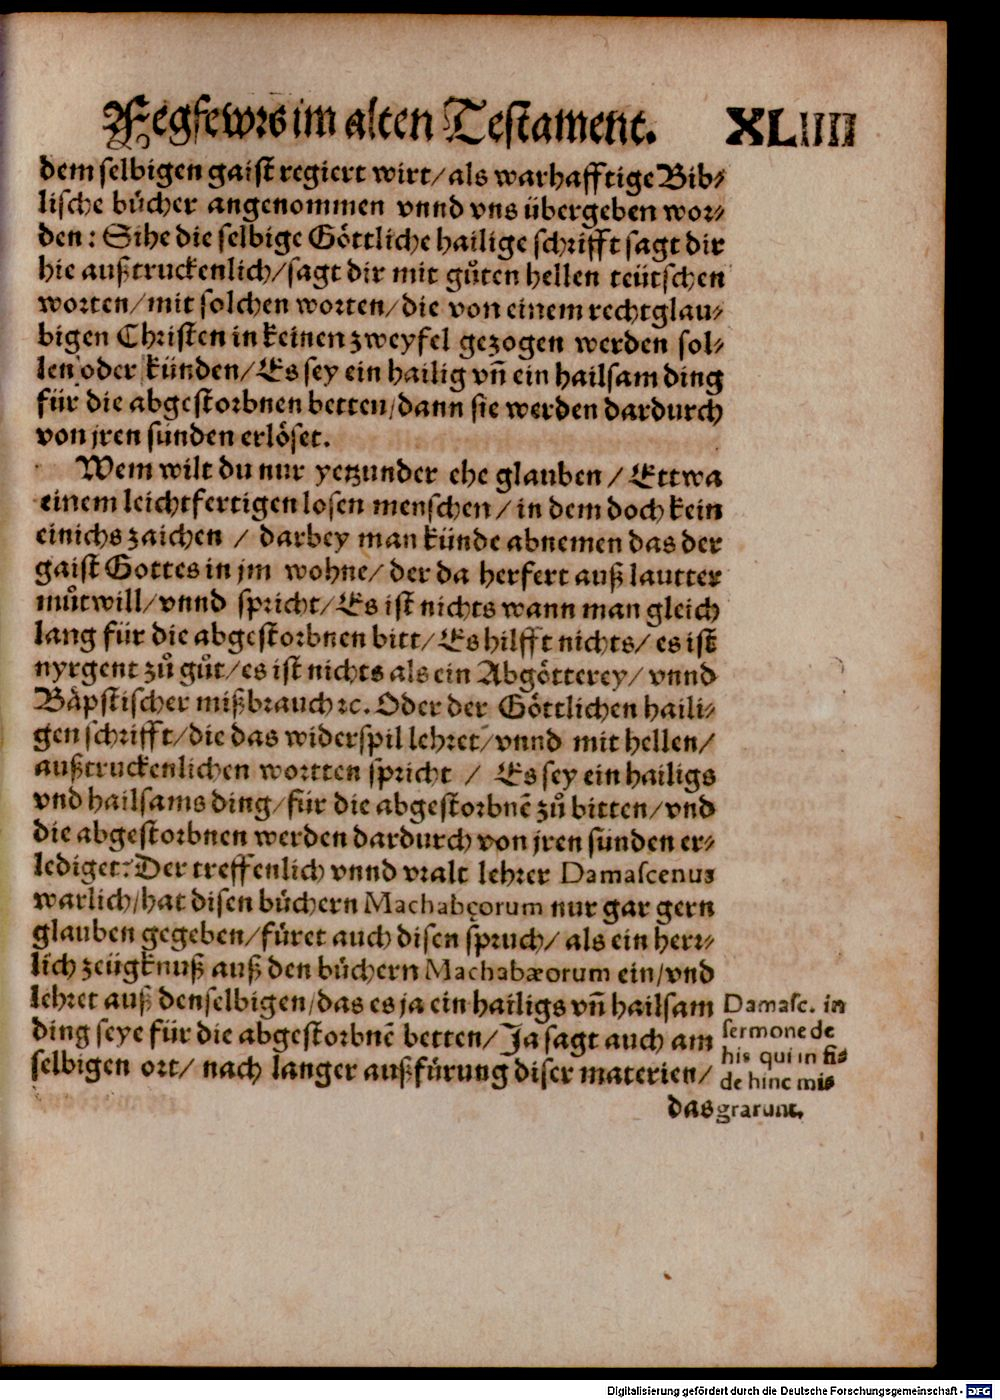 Fegfewrs im alten Testament. XLIIII
dem selbigen gaist regiert wirt/ als warhafftige Bib⸗
lische bůcher angenommen vnnd vns übergeben wor⸗
den: Sihe die selbige Göttliche hailige schrifft sagt dir
hie außtruckenlich/ sagt dir mit gůten hellen teütschen
worten/ mit solchen worten/ die von einem rechtglau⸗
bigen Christen in keinen zweyfel gezogen werden sol⸗
len oder künden/ Es sey ein hailig vn̄ ein hailsam ding
für die abgestorbnen betten/ dann sie werden dardurch
von jren sünden erlöset.
Wem wilt du nur yetzunder ehe glauben/ Ettwa
einem leichtfertigen losen menschen/ in dem doch kein
einichs zaichen / darbey man künde abnemen das der
gaist Gottes in jm wohne/ der da herfert auß lautter
můtwill/ vnnd spricht/ Es ist nichts wann man gleich
lang für die abgestorbnen bitt/ Es hilfft nichts/ es ist
nyrgent zů gůt/ es ist nichts als ein Abgötterey/ vnnd
Bäpstischer mißbrauch ꝛc. Oder der Göttlichen haili⸗
gen schrifft/ die das widerspil lehret/ vnnd mit hellen/
außtruckenlichen wortten spricht / Es sey ein hailigs
vnd hailsams ding/ für die abgestorbnē zů bitten/ vnd
die abgestorbnen werden dardurch von jren sünden er⸗
lediget: Der treffenlich vnnd vralt lehrer Damascenus
warlich/ hat disen bůchern Machabęorum nur gar gern
glauben gegeben/ füret auch disen spruch/ als ein herr⸗
lich zeügknuß auß den bůchern Machabæorum ein/ vnd
lehret auß denselbigen/ das es ja ein hailigs vn̄ hailsam
ding seye für die abgestorbnē betten/ Ja sagt auch am
selbigen ort/ nach langer außfůrung diser materien/
das
Damasc. in
sermone de
his qui in fi⸗
de hinc mi⸗
grarunt.
Digitalisierung gefördert durch die Deutsche Forschungsgemeinschaft - DFG